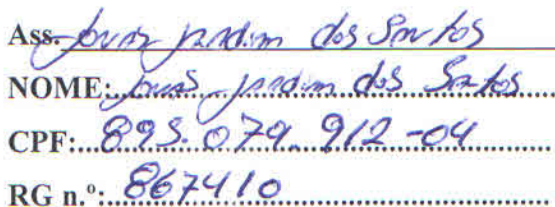 Ass. Jonas jardim dos Santos
NOME: Jonas jardim dos Santos
CPF: 895.079.912-04
RG n.º: 867410